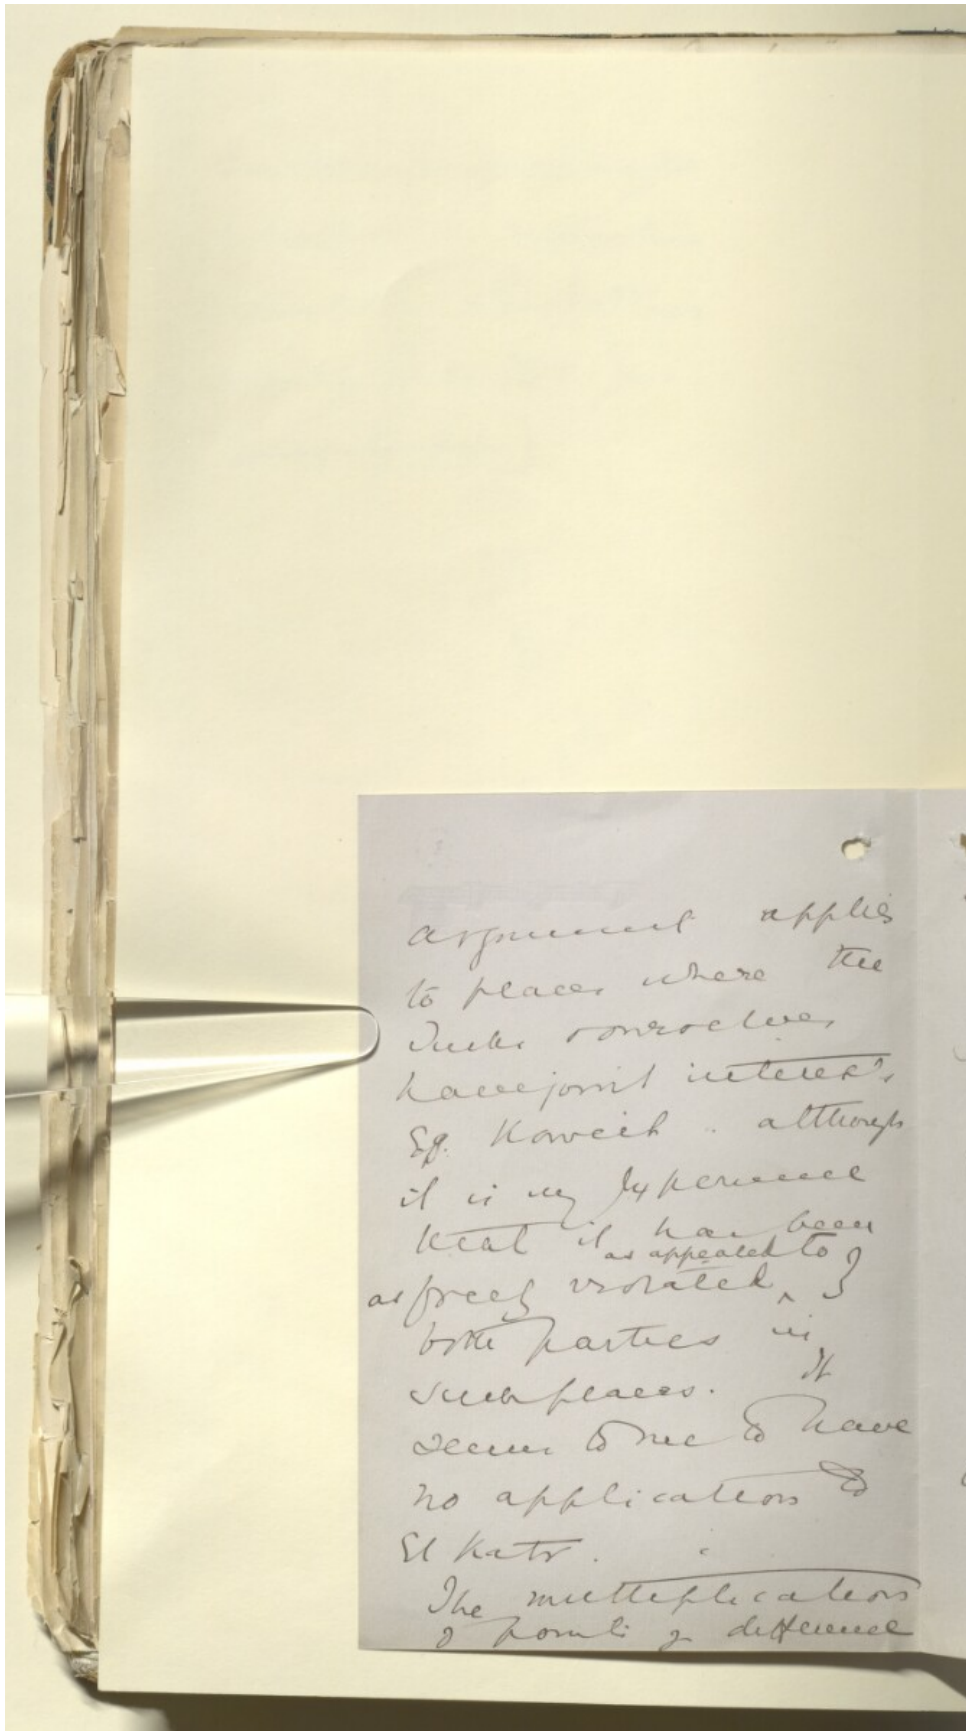 argument applies
to places where the
Turks & ourselves
have joint interests
Eg. Koweit. although
it is my experience
that it has been
as appealed to
as freely violated ^ by
both parties in
such places. It
seems to me to have
no application to
El Katr.
The multiplication
of points of difference